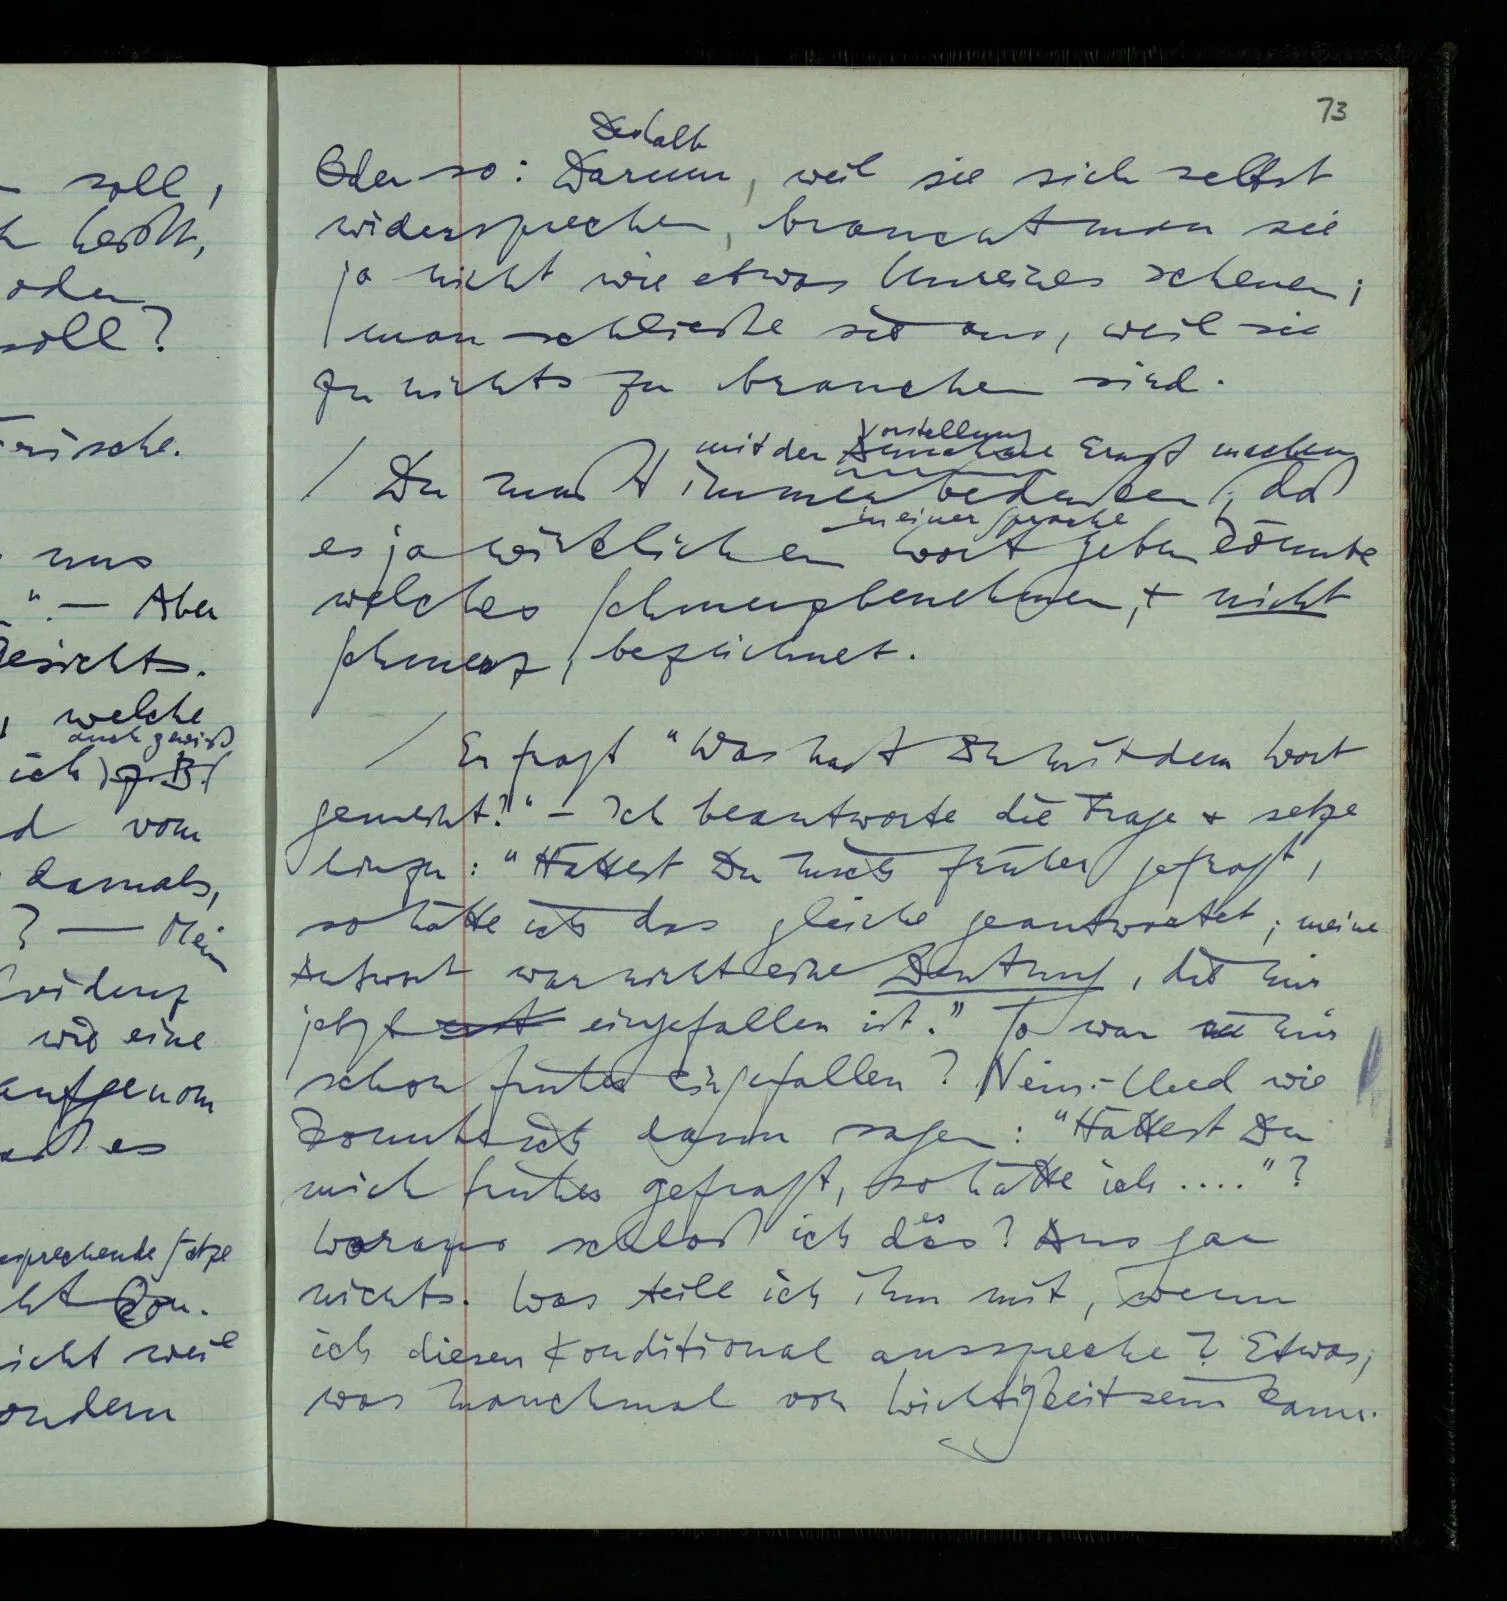 n soll,
h heißt,
oder
soll?
rische.
uns
" — Aber
Gesichts.
, welche
auch gewiß
ich) z.B.
d vom
damals,
? — Mein
Evidenz
wie eine
aufgenom
daß es
sprechende Sätze
ht
nicht weil
ondern
73
Deshalb
Oder so: Darum, weil sie sich selbst
widersprechen, braucht man sie
ja nicht wie etwas Unreines scheuen;
man schließe sie aus, weil sie
zu nichts zu brauchen sind.
Vorstellung
mit der Annahme Ernst machen
/ Du mußt immer bedenken, daß
in einer Sprache
es ja wirklich ein Wort geben könnte
welches Schmerzbenehmen, & nicht
Schmerz, bezeichnet.
/ Er fragt "Was hast Du mit dem Wort
gemeint?" – Ich beantworte die Frage & setze
hinzu: "Hättest Du mich früher gefragt,
so hätte ich das gleiche geantwortet; meine
Antwort war nicht eine Deutung, die mir
jetzt erst eingefallen ist." So war sie mir
schon früher eingefallen? Nein. – Und wie
konnte ich dann sagen: "Hättest Du
mich früher gefragt, so hätte ich ...."?
es
Woraus schloß ich das? Aus gar
nichts. Was teile ich ihm mit, wenn
ich diesen Konditional ausspreche? Etwas,
was manchmal von Wichtigkeit sein kann.